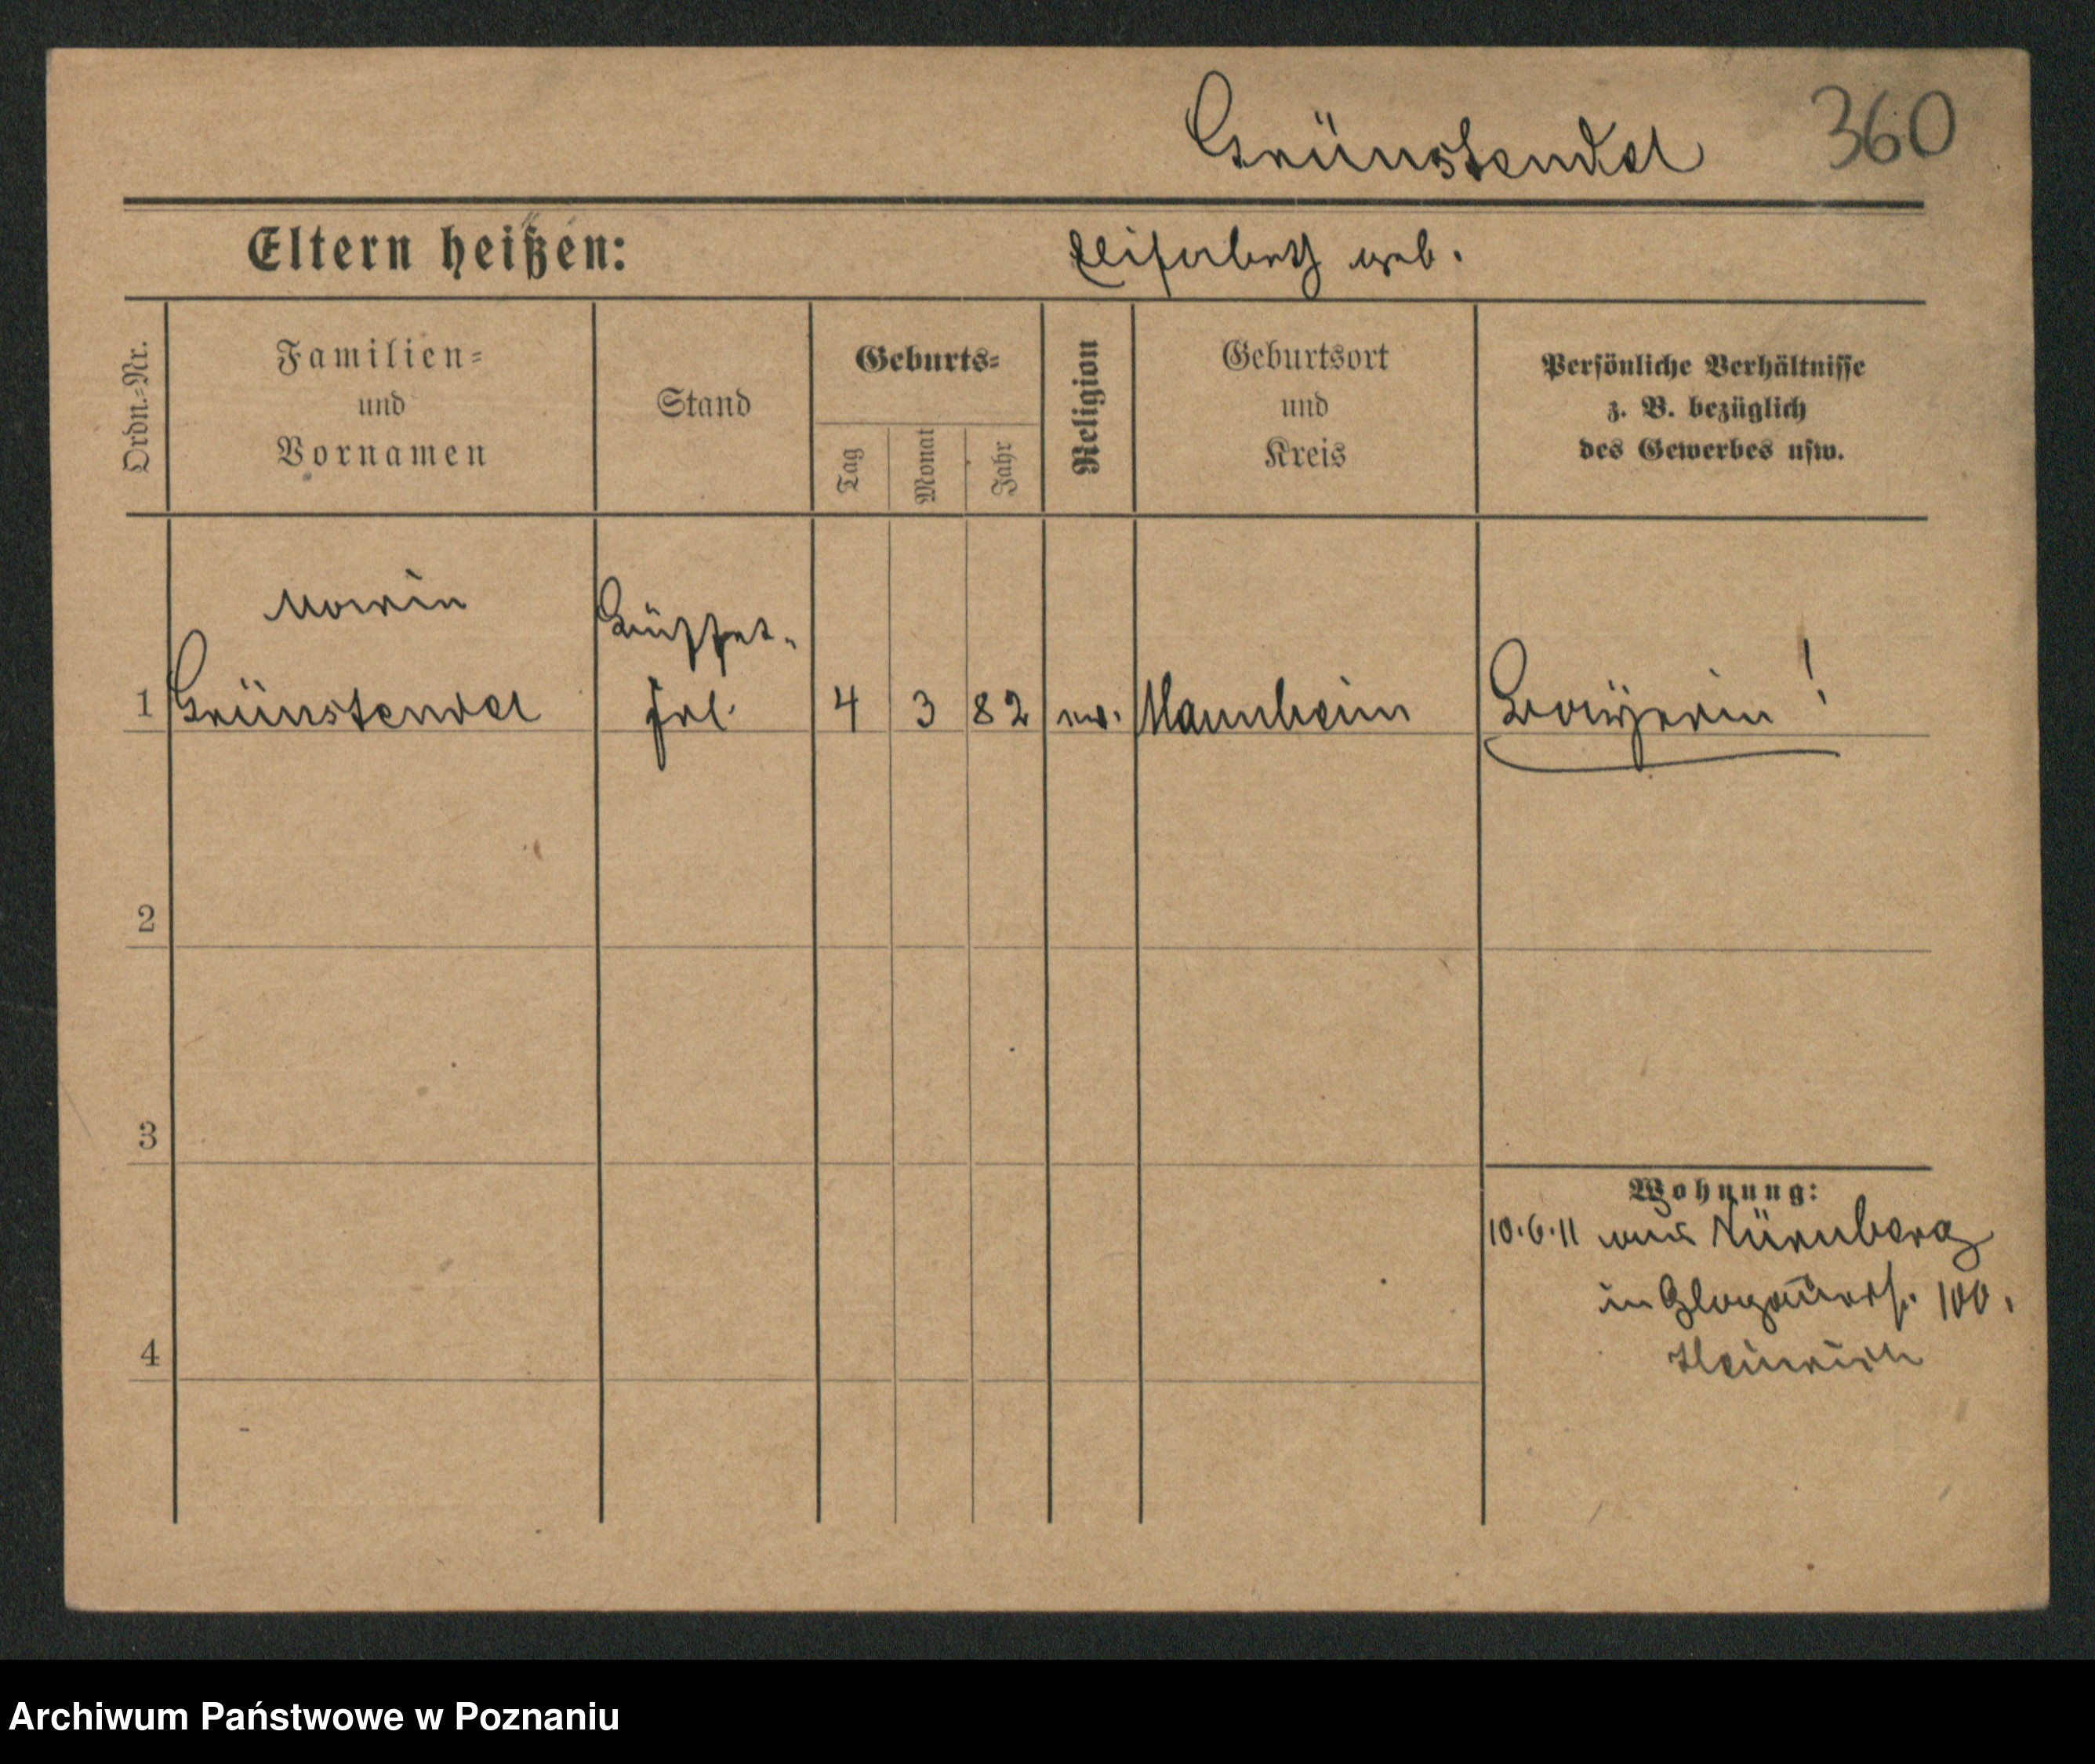 Grünstendel 360
Eltern heißen: Elisabeth geb.
Ordn.=Nr.
Familien=
und
Vornamen
Stand
Geburts=
Tag
Monat
Jahr
Religion
Geburtsort
und
Kreis
Persönliche Verhältnisse
z. B. bezüglich
des Gewerbes usw.
Maria Büffet-
1 Grünstendel frl. 4 3 82 ev. Mannheim Bayerin!
2
3
4
Wohnung:
10.6.11 aus Nürnberg
in Glogauerst. 100.
Heinrich
Archiwum Państwowe w Poznaniu